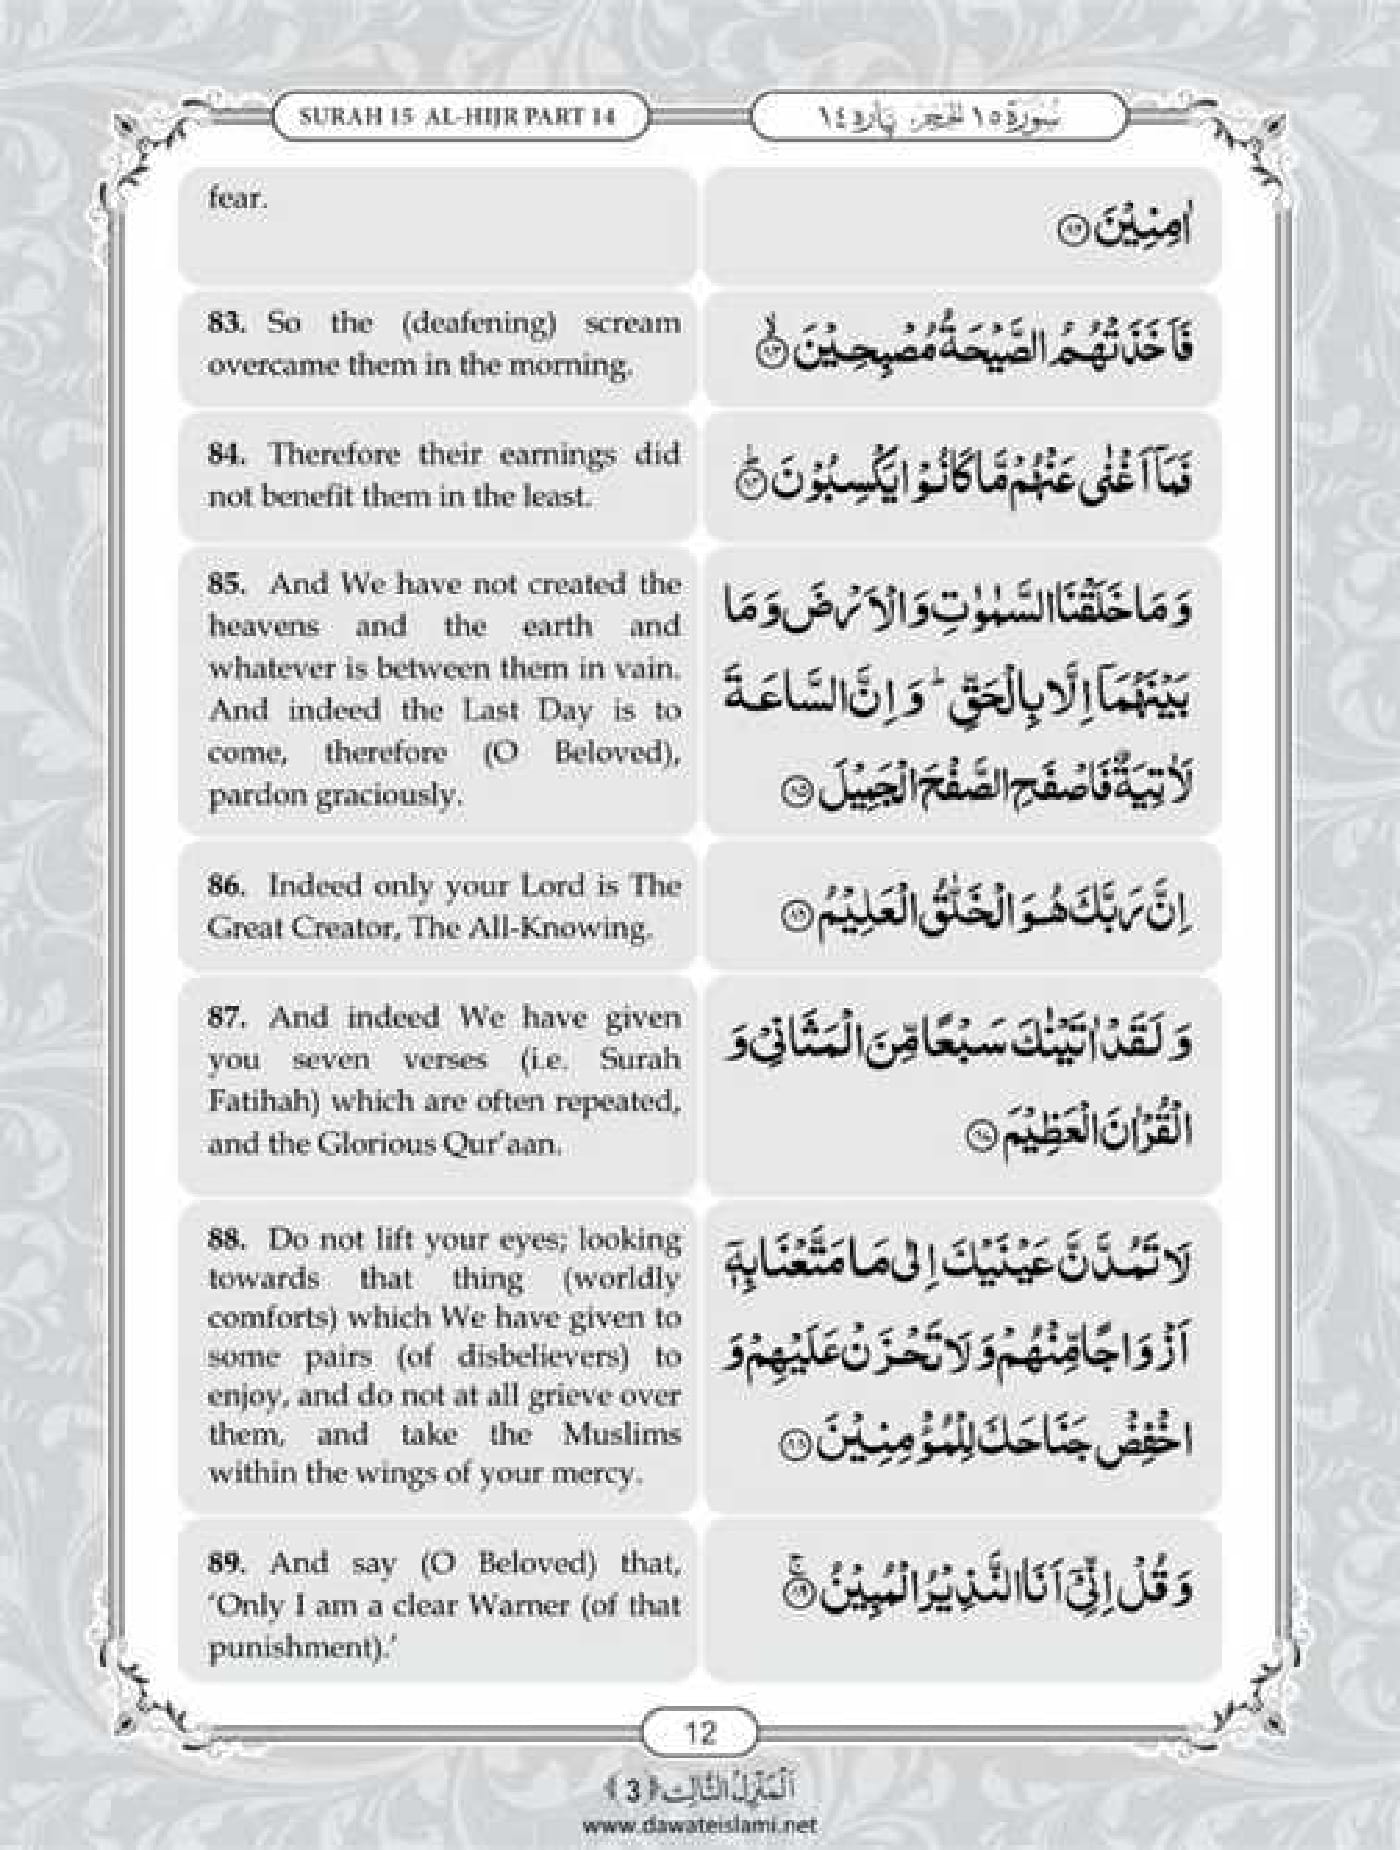 SURAH 15 AL-HIJR PART 14
سُوْرَةُ ١٥ الْحِجْر، پَارَه ١٤
fear.
اٰمِنِیْنَ ﴿۸۲﴾
83. So the (deafening) scream
overcame them in the morning.
فَاَخَذَتْهُمُ الصَّیْحَةُ مُصْبِحِیْنَ ﴿ۙ۸۳﴾
84. Therefore their earnings did
not benefit them in the least.
فَمَاۤ اَغْنٰى عَنْهُمْ مَّا كَانُوْا یَكْسِبُوْنَ ﴿ؕ۸۴﴾
85. And We have not created the
heavens and the earth and
whatever is between them in vain.
And indeed the Last Day is to
come, therefore (O Beloved),
pardon graciously.
وَ مَا خَلَقْنَا السَّمٰوٰتِ وَ الْاَرْضَ وَ مَا
بَیْنَهُمَاۤ اِلَّا بِالْحَقِّ ؕ وَ اِنَّ السَّاعَةَ
لَاٰتِیَةٌ فَاصْفَحِ الصَّفْحَ الْجَمِیْلَ ﴿۸۵﴾
86. Indeed only your Lord is The
Great Creator, The All-Knowing.
اِنَّ رَبَّكَ هُوَ الْخَلّٰقُ الْعَلِیْمُ ﴿۸۶﴾
87. And indeed We have given
you seven verses (i.e. Surah
Fatihah) which are often repeated,
and the Glorious Qur’aan.
وَ لَقَدْ اٰتَیْنٰكَ سَبْعًا مِّنَ الْمَثَانِیْ وَ
الْقُرْاٰنَ الْعَظِیْمَ ﴿۸۷﴾
88. Do not lift your eyes; looking
towards that thing (worldly
comforts) which We have given to
some pairs (of disbelievers) to
enjoy, and do not at all grieve over
them, and take the Muslims
within the wings of your mercy.
لَا تَمُدَّنَّ عَیْنَیْكَ اِلٰى مَا مَتَّعْنَا بِهٖۤ
اَزْوَاجًا مِّنْهُمْ وَ لَا تَحْزَنْ عَلَیْهِمْ وَ
اخْفِضْ جَنَاحَكَ لِلْمُؤْمِنِیْنَ ﴿۸۸﴾
89. And say (O Beloved) that,
‘Only I am a clear Warner (of that
punishment).’
وَ قُلْ اِنِّیْۤ اَنَا النَّذِیْرُ الْمُبِیْنُ ﴿ۚ۸۹﴾
12
اَلْمَنْزِلُ الثَّالِث ﴿ 3 ﴾
www.dawateislami.net